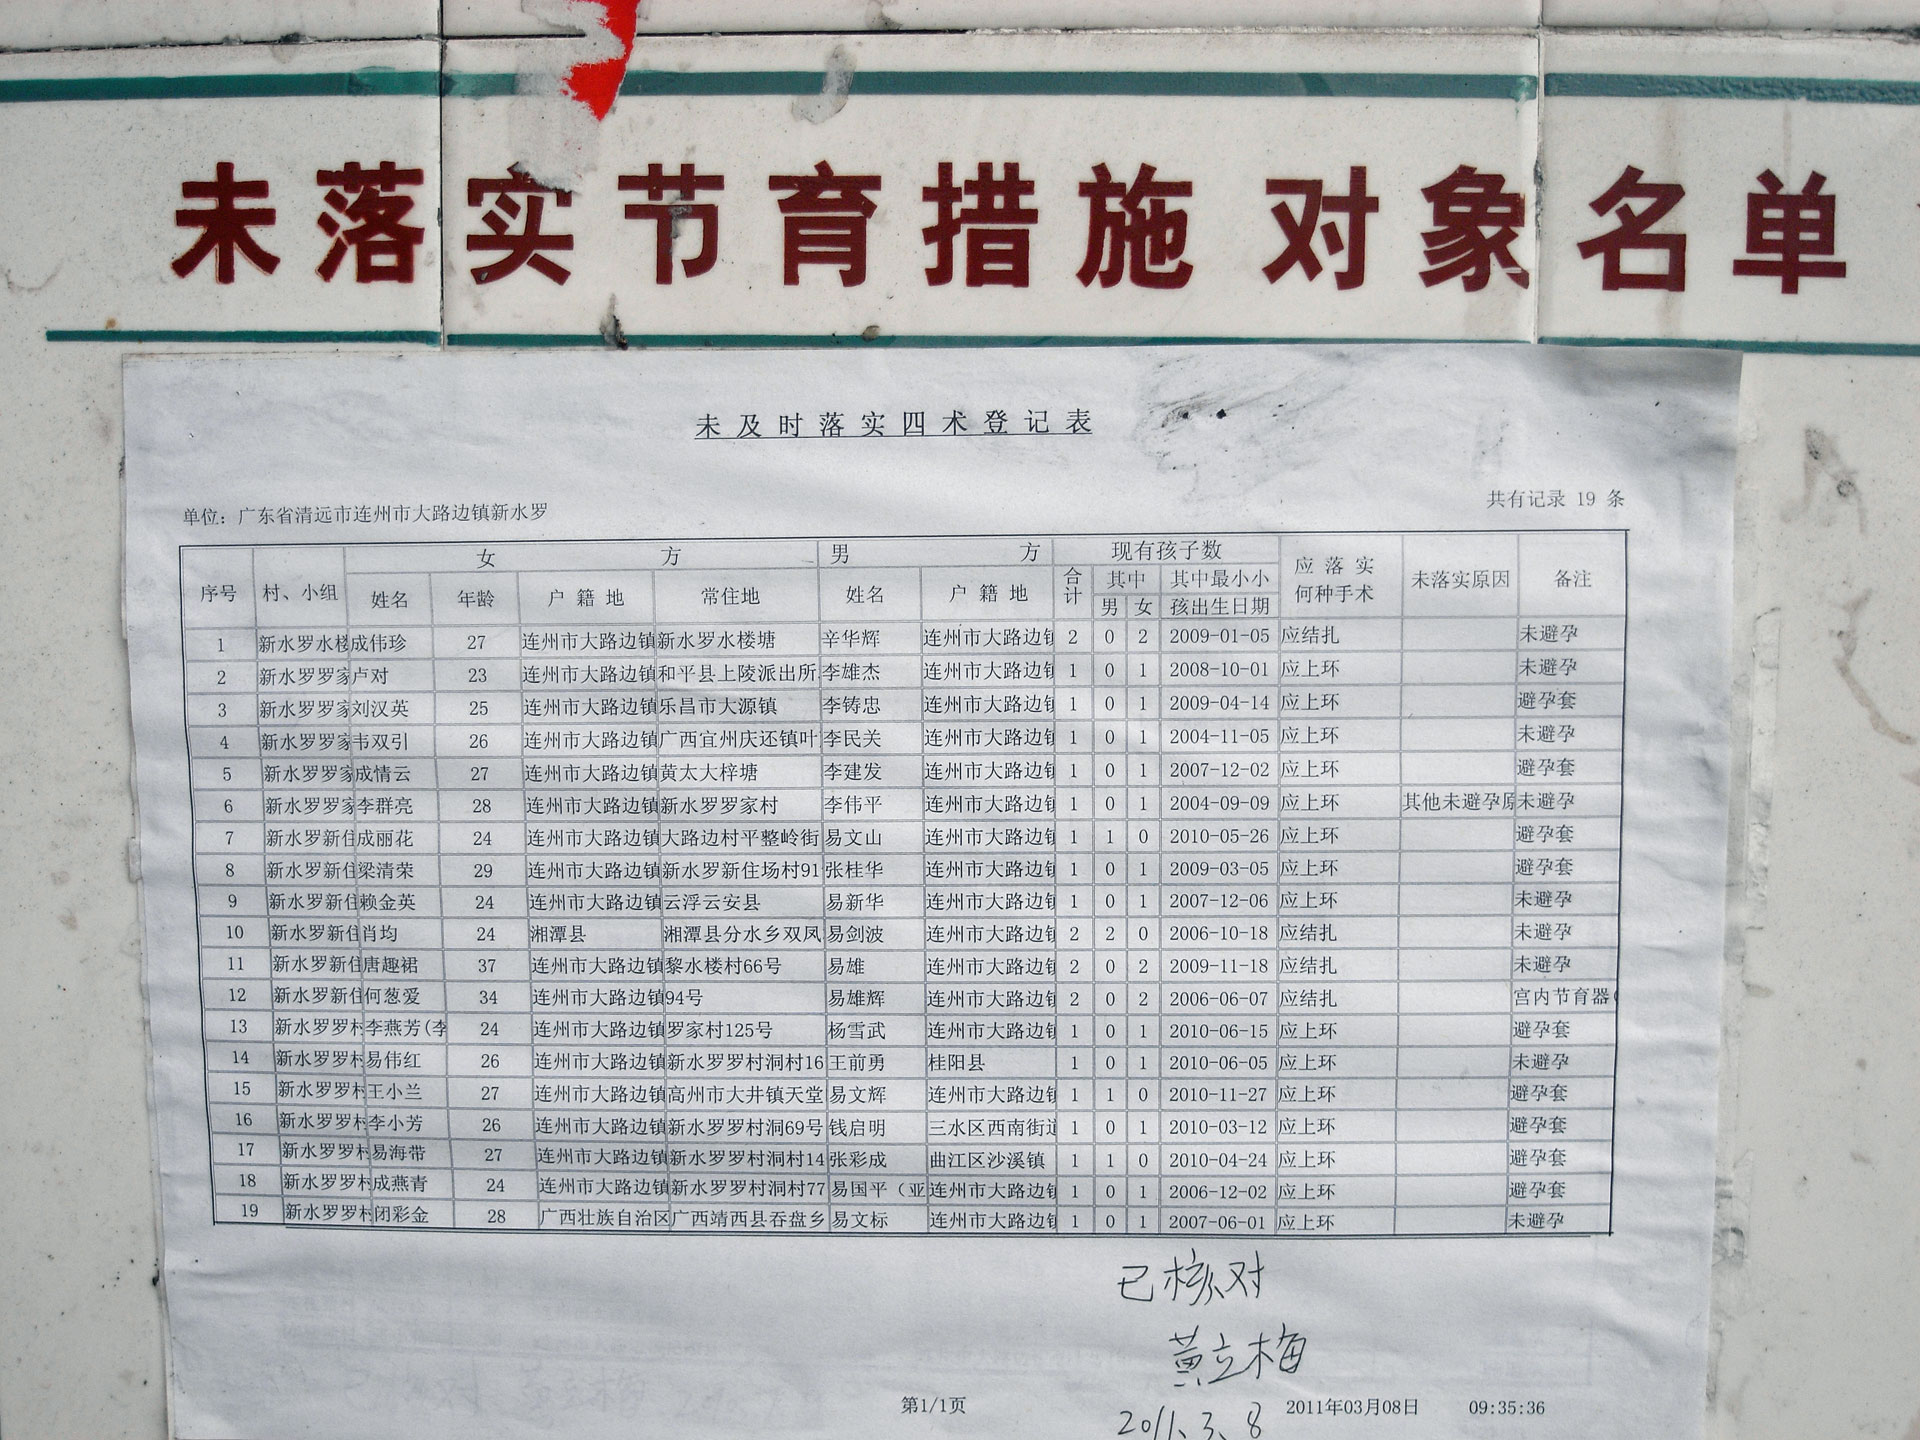 未落实节育措施对象名单
未及时落实四术登记表
单位：广东省清远市连州市大路边镇新水罗
共有记录 19 条
序号 村、小组 女方 男方 现有孩子数 应落实何种手术 未落实原因 备注
姓名 年龄 户籍地 常住地 姓名 户籍地 合计 其中 其中最小小孩出生日期
男 女
1 新水罗水楼 成伟珍 27 连州市大路边镇 新水罗水楼塘 辛华辉 连州市大路边镇 2 0 2 2009-01-05 应结扎 未避孕
2 新水罗罗家 卢对 23 连州市大路边镇 和平县上陵派出所 李雄杰 连州市大路边镇 1 0 1 2008-10-01 应上环 未避孕
3 新水罗罗家 刘汉英 25 连州市大路边镇 乐昌市大源镇 李铸忠 连州市大路边镇 1 0 1 2009-04-14 应上环 避孕套
4 新水罗罗家 韦双引 26 连州市大路边镇 广西宜州庆还镇叶 李民关 连州市大路边镇 1 0 1 2004-11-05 应上环 未避孕
5 新水罗罗家 成情云 27 连州市大路边镇 黄太大梓塘 李建发 连州市大路边镇 1 0 1 2007-12-02 应上环 避孕套
6 新水罗罗家 李群亮 28 连州市大路边镇 新水罗罗家村 李伟平 连州市大路边镇 1 0 1 2004-09-09 应上环 其他未避孕原 未避孕
7 新水罗新住 成丽花 24 连州市大路边镇 大路边村平整岭街 易文山 连州市大路边镇 1 1 0 2010-05-26 应上环 避孕套
8 新水罗新住 梁清荣 29 连州市大路边镇 新水罗新住场村91 张桂华 连州市大路边镇 1 0 1 2009-03-05 应上环 避孕套
9 新水罗新住 赖金英 24 连州市大路边镇 云浮云安县 易新华 连州市大路边镇 1 0 1 2007-12-06 应上环 未避孕
10 新水罗新住 肖均 24 湘潭县 湘潭县分水乡双凤 易剑波 连州市大路边镇 2 2 0 2006-10-18 应结扎 未避孕
11 新水罗新住 唐趣裙 37 连州市大路边镇 黎水楼村66号 易雄 连州市大路边镇 2 0 2 2009-11-18 应结扎 未避孕
12 新水罗新住 何葱爱 34 连州市大路边镇 94号 易雄辉 连州市大路边镇 2 0 2 2006-06-07 应结扎 宫内节育器(
13 新水罗罗村 李燕芳(李 24 连州市大路边镇 罗家村125号 杨雪武 连州市大路边镇 1 0 1 2010-06-15 应上环 避孕套
14 新水罗罗村 易伟红 26 连州市大路边镇 新水罗罗村洞村16 王前勇 桂阳县 1 0 1 2010-06-05 应上环 未避孕
15 新水罗罗村 王小兰 27 连州市大路边镇 高州市大井镇天堂 易文辉 连州市大路边镇 1 1 0 2010-11-27 应上环 避孕套
16 新水罗罗村 李小芳 26 连州市大路边镇 新水罗罗村洞69号 钱启明 三水区西南街道 1 0 1 2010-03-12 应上环 避孕套
17 新水罗罗村 易海带 27 连州市大路边镇 新水罗罗村洞村14 张彩成 曲江区沙溪镇 1 1 0 2010-04-24 应上环 避孕套
18 新水罗罗村 成燕青 24 连州市大路边镇 新水罗罗村洞村77 易国平（亚 连州市大路边镇 1 0 1 2006-12-02 应上环 避孕套
19 新水罗罗村 闭彩金 28 广西壮族自治区 广西靖西县吞盘乡 易文标 连州市大路边镇 1 0 1 2007-06-01 应上环 未避孕
已核对
黄立梅
2011.3.8
第1/1页 2011年03月08日 09:35:36